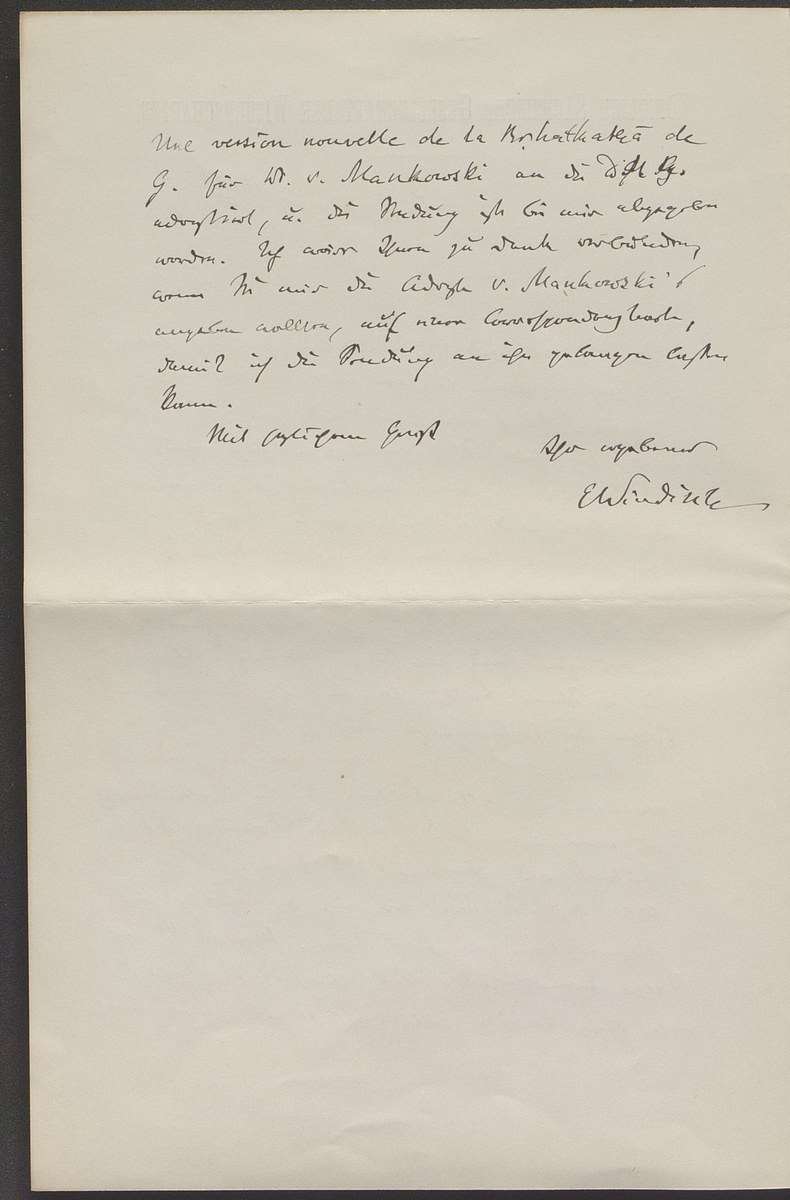 Une version nouvelle de la Bṛihatkathā de
G. für W. v. Mankowski an die
adressirt, u. die Sendung ist bei mir abgegeben
worden. Ich wäre Ihnen zu Dank verbunden,
wenn Sie mir die Adresse v. Mankowski's
angeben wollten, auf einer Correspondenzkarte,
damit ich die Sendung an ihn gelangen lassen
kann.
Mit bestem Gruß
Ihr ergebener
EWindisch